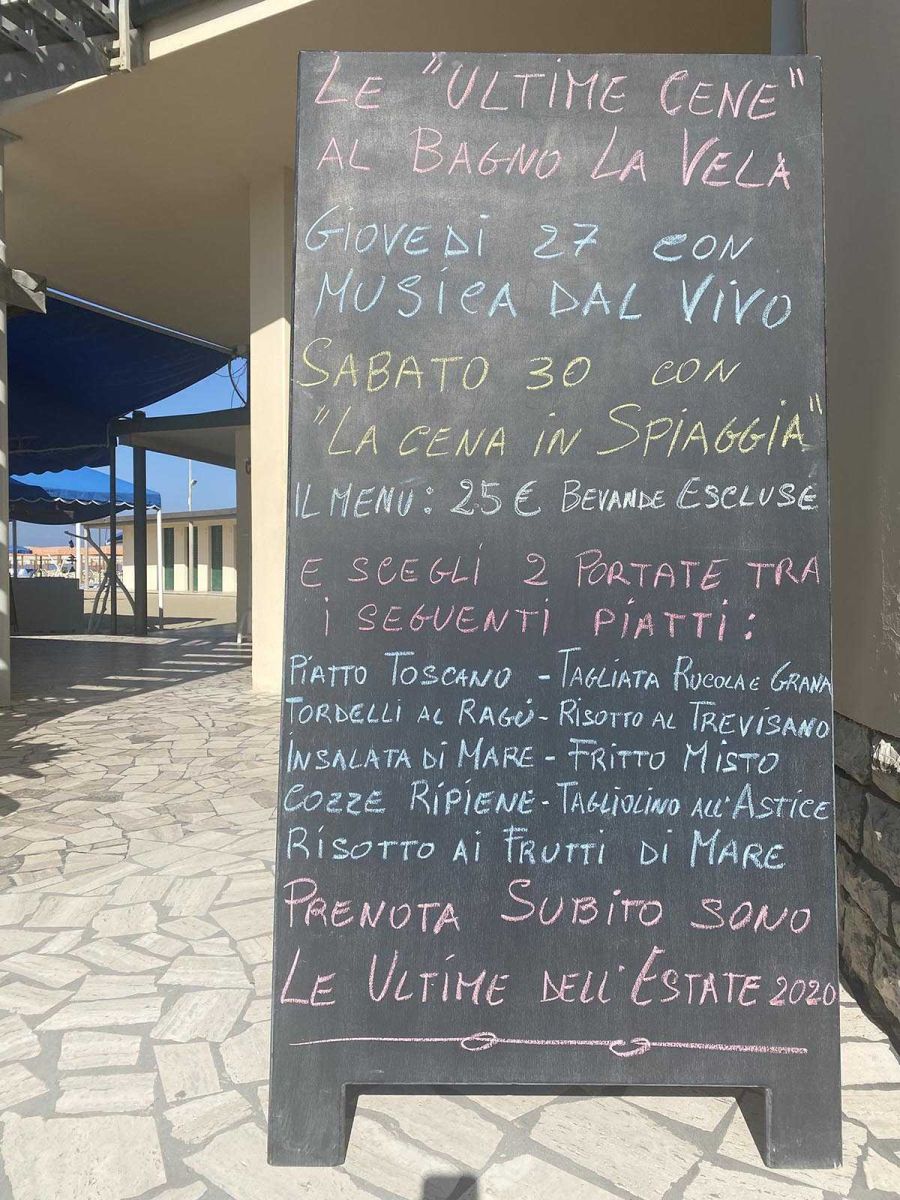 LE "ULTIME CENE"
AL BAGNO LA VELA
GIOVEDI 27 CON
MUSICA DAL VIVO
SABATO 30 CON
"LA CENA IN SPIAGGIA"
IL MENÚ: 25€ BEVANDE ESCLUSE
E SCEGLI 2 PORTATE TRA
I SEGUENTI PIATTI:
PIATTO TOSCANO - TAGLIATA RUCOLA E GRANA
TORDELLI AL RAGÚ - RISOTTO AL TREVISANO
INSALATA DI MARE - FRITTO MISTO
COZZE RIPIENE - TAGLIOLINO ALL'ASTICE
RISOTTO AI FRUTTI DI MARE
PRENOTA SUBITO SONO
LE ULTIME DELL'ESTATE 2020